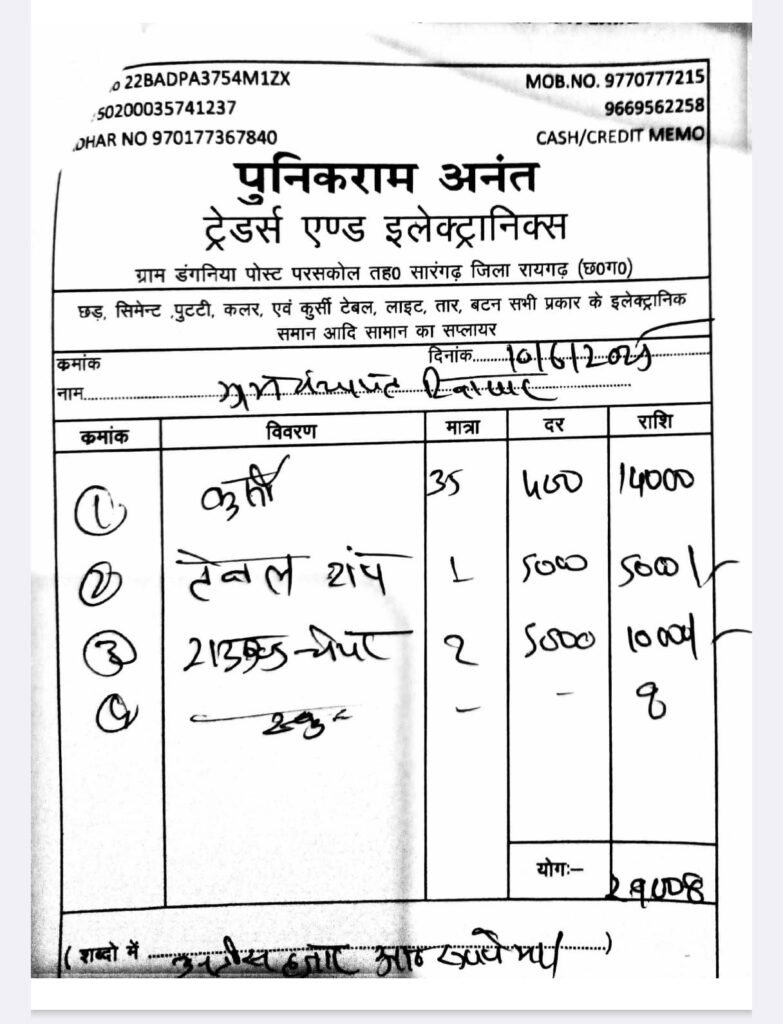 22BADPA3754M1ZX MOB.NO. 9770777215
50200035741237 9669562258
DHAR NO 970177367840 CASH/CREDIT MEMO
पुनिकराम अनंत
ट्रेडर्स एण्ड इलेक्ट्रानिक्स
ग्राम डंगनिया पोस्ट परसकोल तह0 सारंगढ़ जिला रायगढ़ (छ0ग0)
छड़, सिमेन्ट ,पुटटी, कलर, एवं कुर्सी टेबल, लाइट, तार, बटन सभी प्रकार के इलेक्ट्रानिक
समान आदि सामान का सप्लायर
कमांक दिनांक 10/6/2025
नाम
कमांक विवरण मात्रा दर राशि
1 कुर्सी 35 400 14000
2 टेबल 1 5000 5000/-
3 2 5000 10000/-
4 - - 8
योगः— 29008
( शब्दो में उन्तीस हजार आठ रूपये मा )